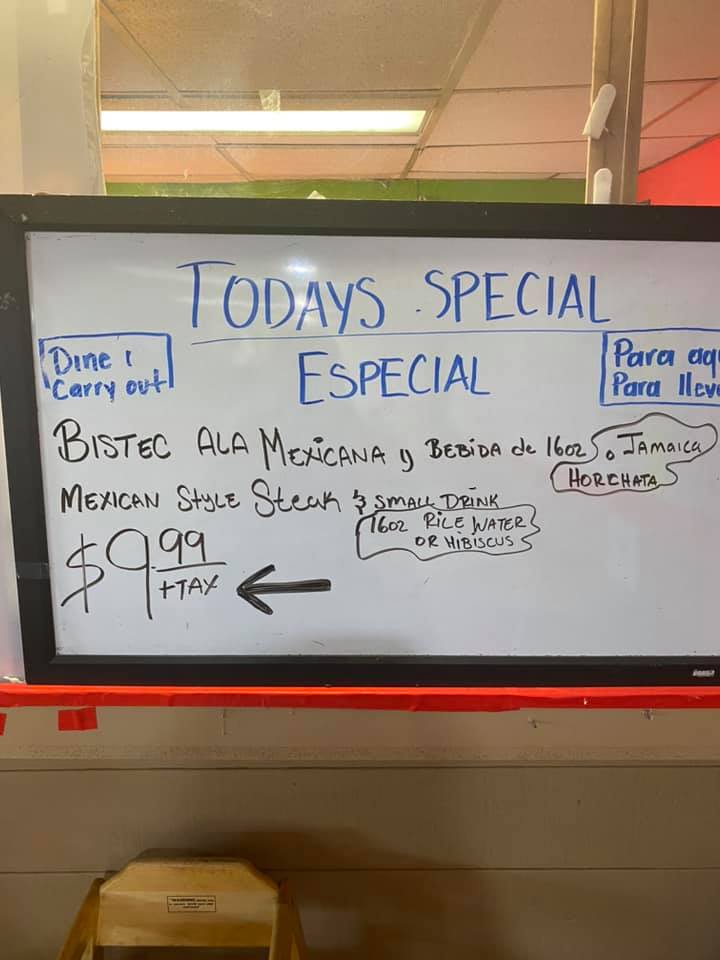 TODAYS SPECIAL
ESPECIAL
Dine i
Carry out
Para aqu
Para lleva
BISTEC ALA MEXICANA y BEBIDA de 16oz o JAMAICA
HORCHATA
MEXICAN STYLE Steak & SMALL DRINK
16oz RICE WATER
OR HIBISCUS
$9.99
+TAX
"WARNING"